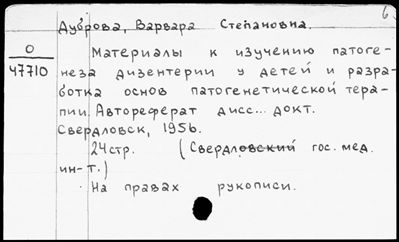 Дуброва, Варвара Степановна.
О
47710
Материалы к изучению патоге-
неза дизентерии у детей и разра-
ботка основ патогенетической тера-
пии. Автореферат дисс... докт.
Свердловск, 1956.
24стр. (Свердловский гос. мед.
ин-т.)
На правах рукописи.